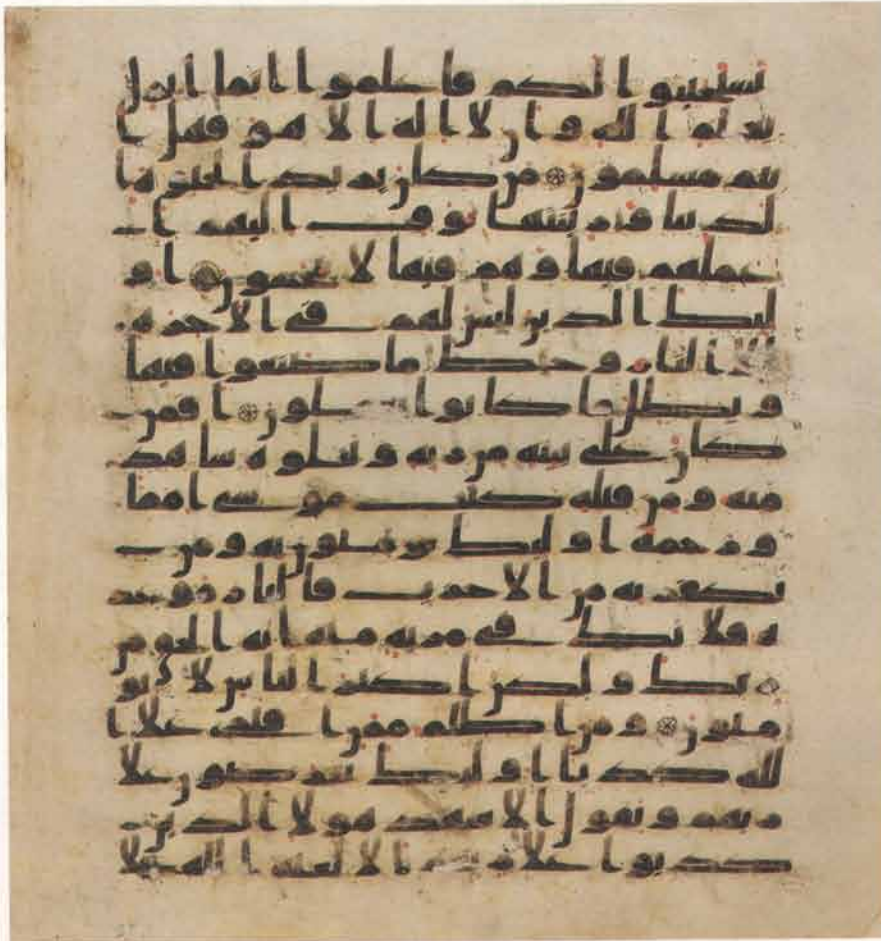 يستجيبوا لكم فاعلموا انما انزل
بعلم الله وان لا اله الا هو فهل ا
نتم مسلمون من كان يريد الحيوة ا
لدنيا وزينتها نوف اليهم ا
عملهم فيها وهم فيها لا يبخسون او
لئك الذين ليس لهم في الاخرة
الا النار وحبط ما صنعوا فيها
وبطل ما كانوا يعملون افمن
كان على بينة من ربه ويتلوه شاهد
منه ومن قبله كتب موسى امما
ورحمة اولئك يؤمنون به ومن
يكفر به من الاحزب فالنار موعد
ه فلا تك في مرية منه انه الحق من
ربك ولكن اكثر الناس لا يؤ
منون ومن اظلم ممن افترى علا ا
لله كذبا اولئك يعرضون علا
ربهم ويقول الاشهد هولا الذين
كذبوا علا ربهم الا لعنة الله علا